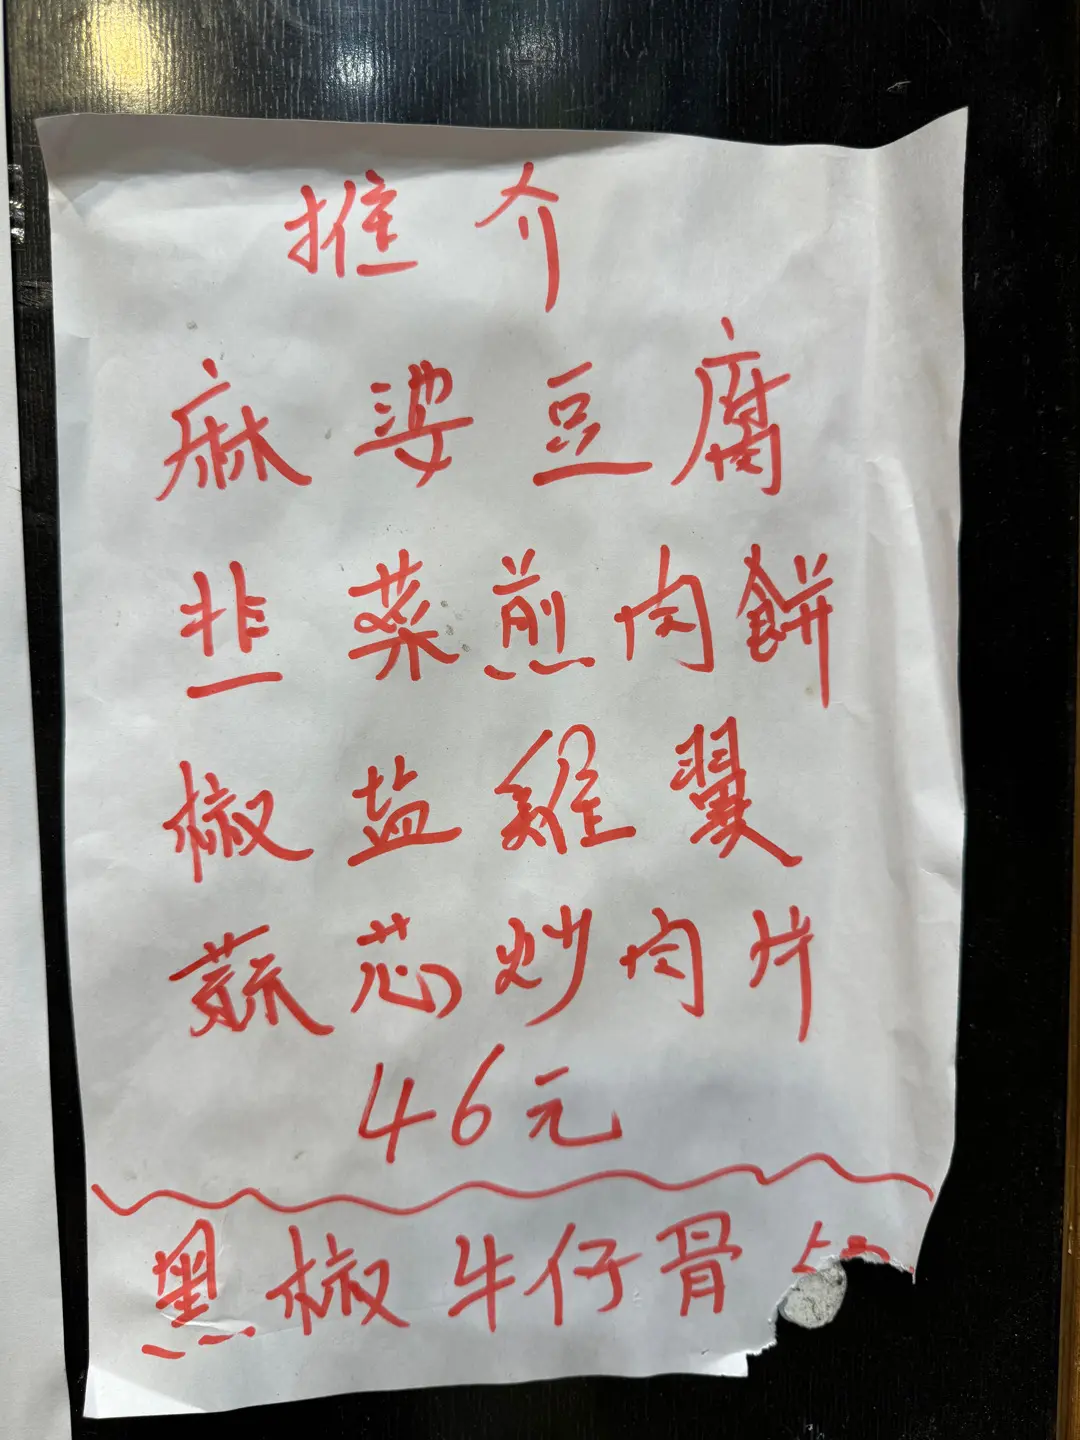 推介
麻婆豆腐
韭菜煎肉餅
椒盐雞翼
蒜芯炒肉片
46元
黑椒牛仔骨